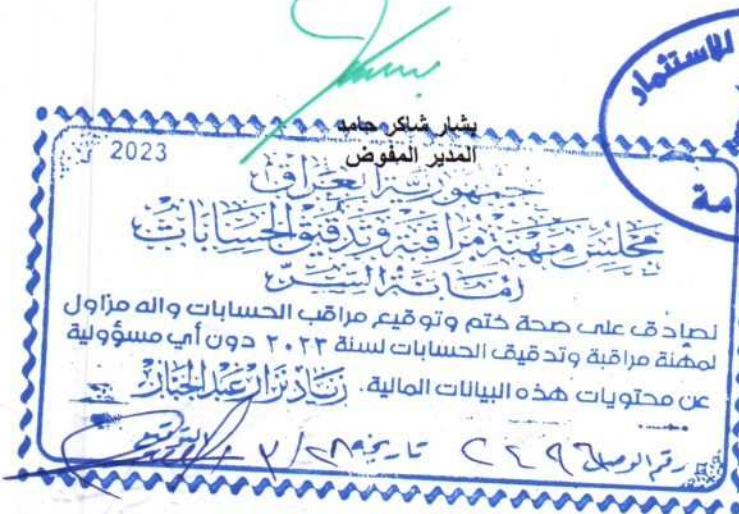 بشار شاكر حامد
المدير المفوض
للاستثمار
2023
جمهورية العراق
مجلس مهنة مراقبة وتدقيق الحسابات
امانة السر
نصادق على صحة ختم وتوقيع مراقب الحسابات وانه مزاول
لمهنة مراقبة وتدقيق الحسابات لسنة ٢٠٢٣ دون أي مسؤولية
عن محتويات هذه البيانات المالية.
رقم الوصل ٢٤٩٦ تاريخه ٣/٢٨ التوقيع